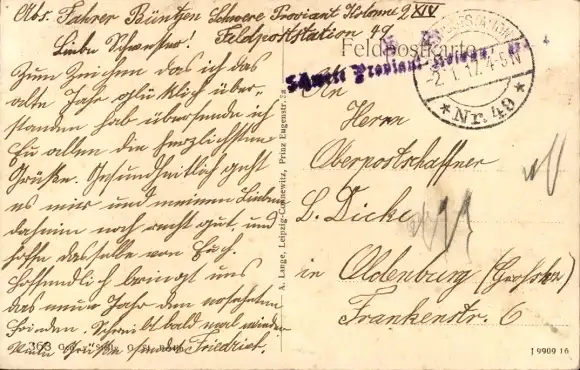 Abs. Fahrer Büntjen Schwere Proviant Kolonne 2 XIV
Feldpoststation 49
Liebe Schwester!
Zum Zeichen das ich das
alte Jahr glücklich über-
standen hab übersende ich
Euch allen die herzlichsten
Grüße. Gesundheitlich geht
es mir und meinen Lieben
daheim noch recht gut, und
hoffe dasselbe von Euch.
Hoffendlich bringt uns
das neue Jahr den ersehnten
Frieden. Schreibt bald mal wieder
Viele Grüße sendet Friedrich.
363
A. Lange, Leipzig-Connewitz, Prinz Eugenstr. 3a
Feldpostkarte
Schwere Proviant-Kolonne
2.1.17. 4-5N
* Nr. 49 *
An
Herrn
Oberpostschaffner
L. Dicke
in Oldenburg (Großhzt.)
Frankenstr. 6
J 9909 16